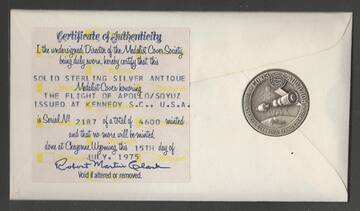 Certificate of Authenticity
I, the undersigned, Director of the Medalist Cover Society
being duly sworn, hereby certify that this
SOLID STERLING SILVER ANTIQUE
Medalist Cover honoring
THE FLIGHT OF APOLLO/SOYUZ
ISSUED AT KENNEDY S.C., U.S.A.
is Serial No 2187 of a total of 4600 minted
and that no more will be minted.
done at Cheyenne, Wyoming this 15TH day of
JULY, 1975
Robert Martin Clark
Void if altered or removed.